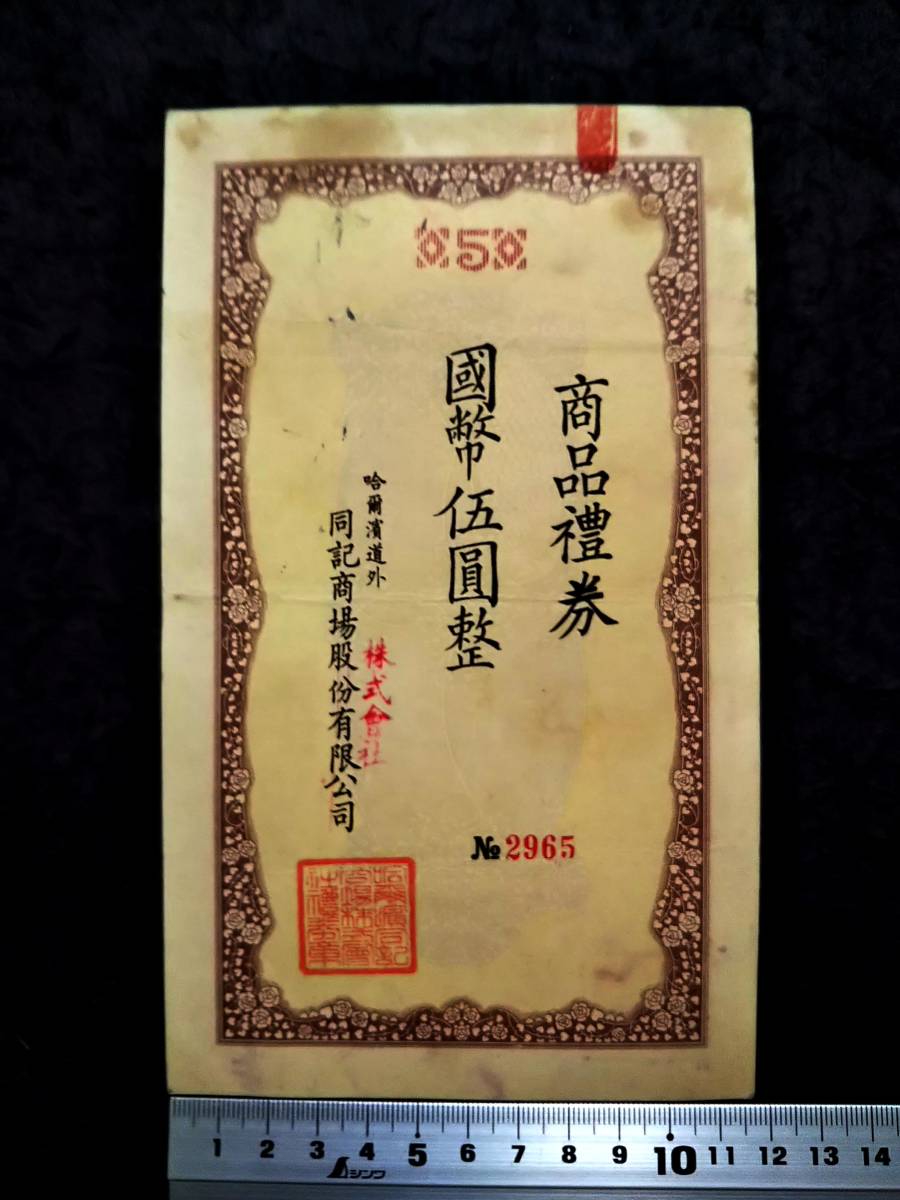 5
商品禮券
國幣伍圓整
哈爾濱道外
株式會社
同記商場股份有限公司
№2965
1 2 3 4 5 6 7 8 9 10 11 12 13 14
シンワ